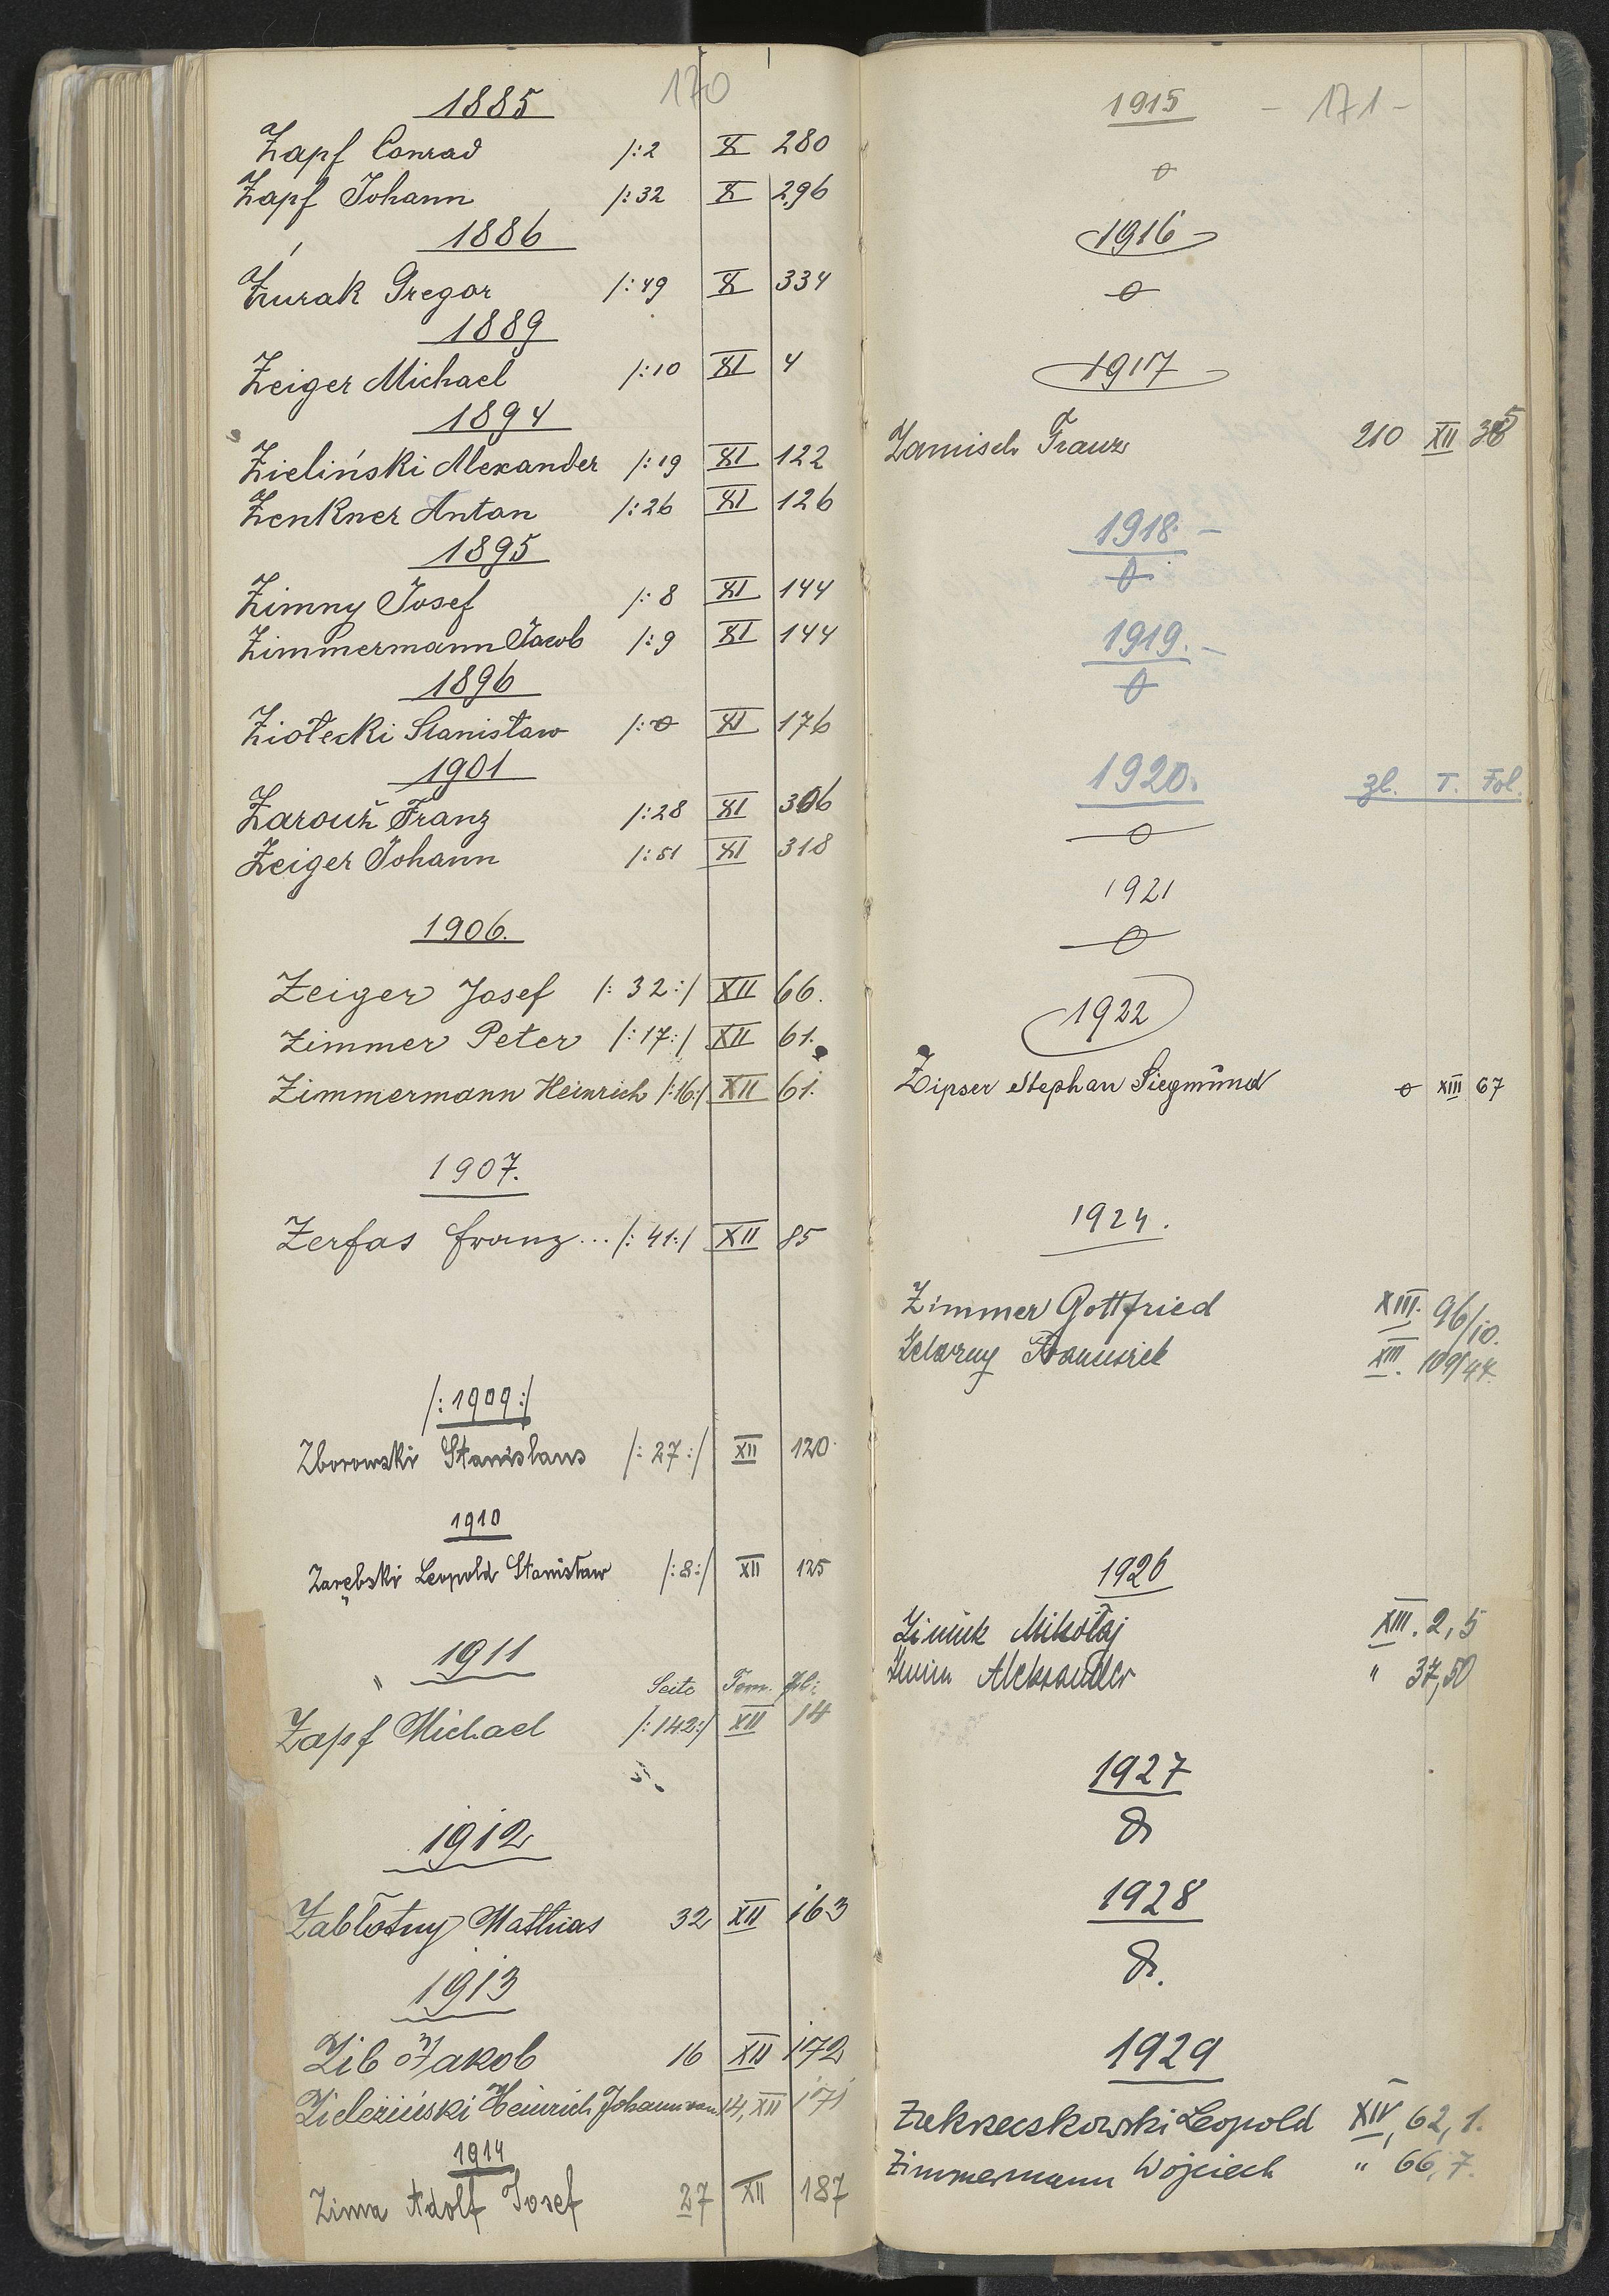 170
1885
Zapf Conrad /:2 X 280
Zapf Johann /:32 X 296
1886
Żurak Gregor /:49 X 334
1889
Zeiger Michael /:10 XI 4
1894
Zieliński Alexander /:19 XI 122
Zenkner Anton /:26 XI 126
1895
Zimny Josef /:8 XI 144
Zimmermann Jacob /:9 XI 144
1896
Ziołecki Stanisław /:0 XI 176
1901
Zarouž Franz /:28 XI 306
Zeiger Johann /:51 XI 318
1906.
Zeiger Josef /: 32:/ XII 66.
Zimmer Peter /:17:/ XII 61.
Zimmermann Heinrich /:16:/ XII 61.
1907.
Zerfas Franz... /: 41:/ XII 85
/:1909:/
Zborowski Stanislaus /: 27:/ XII 120
1910
Zarębski Leopold Stanisław /:8:/ XII 125
1911
Seite Tom. fol:
Zapf Michael /:142:/ XII 14
1912
Zabłotny Mathias 32 XII 163
1913
Zib Jakob 16 XII 172
Zieleziński Heinrich Johann 14, XII 171
1914
Zima Adolf Josef 27 XII 187
1915 - 171 -
0
1916
0
1917
Zamisch Franz 210 XII
1918. -
0
1919. -
0
1920. zl. T. Fol.
0
1921
0
1922
Zipser Stephan Siegmund 0 XIII 67
1924.
Zimmer Gottfried XIII. 96/10.
Franciszek XIII. 109/47.
1926
Mikołaj XIII. 2, 5
Aleksander " 37,50
1927
0
1928
0.
1929
Leopold XIV, 62, 1.
Zimmermann Wojciech " 66, 7.